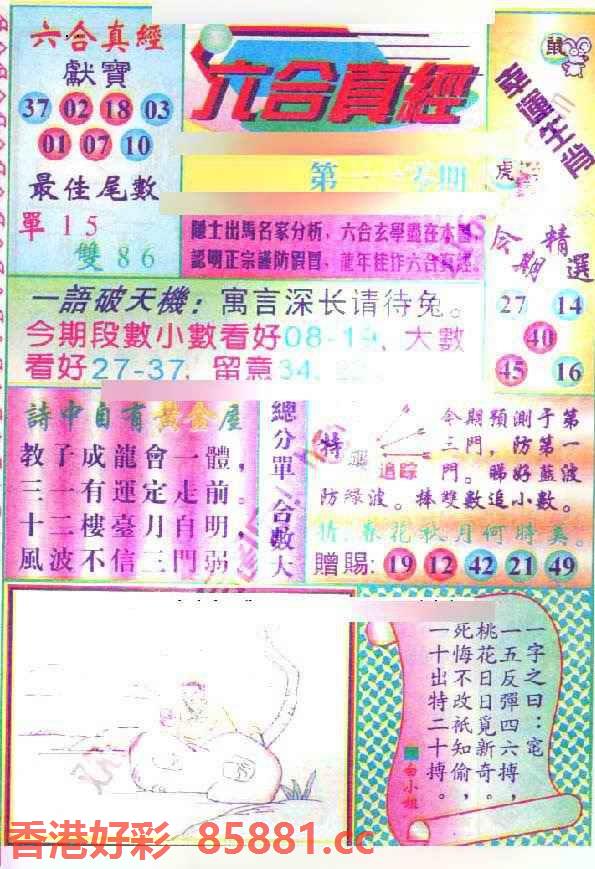 六合真經
獻寶
37 02 18 03
01 07 10
最佳尾數
單 1 5
雙 8 6
六合真經
鼠
幸運生肖
虎
隱士出馬名家分析，六合玄學盡在本圖，
認明正宗謹防假冒，龍年佳作六合真經。
今期精選
27 14
40
45 16
一語破天機：寓言深长请待兔。
今期段數小數看好08-19、大數
看好27-37，留意34,
詩中自有黃金屋
教子成龍會一體，
三一有運定走前。
十二樓臺月自明，
風波不信三門弱
總分單 合數大
特
追踪
今期預測于第
三門，防第一
門。睇好藍波
防綠波。捧雙數追小數。
猜：春花秋月何時美。
贈賜: 19 12 42 21 49
一字之曰：寃
一五反彈四六搏，
桃花日日覓新奇。
死悔不改祇知偷，
一十出特二十搏。
白小姐
香港好彩 85881.cc